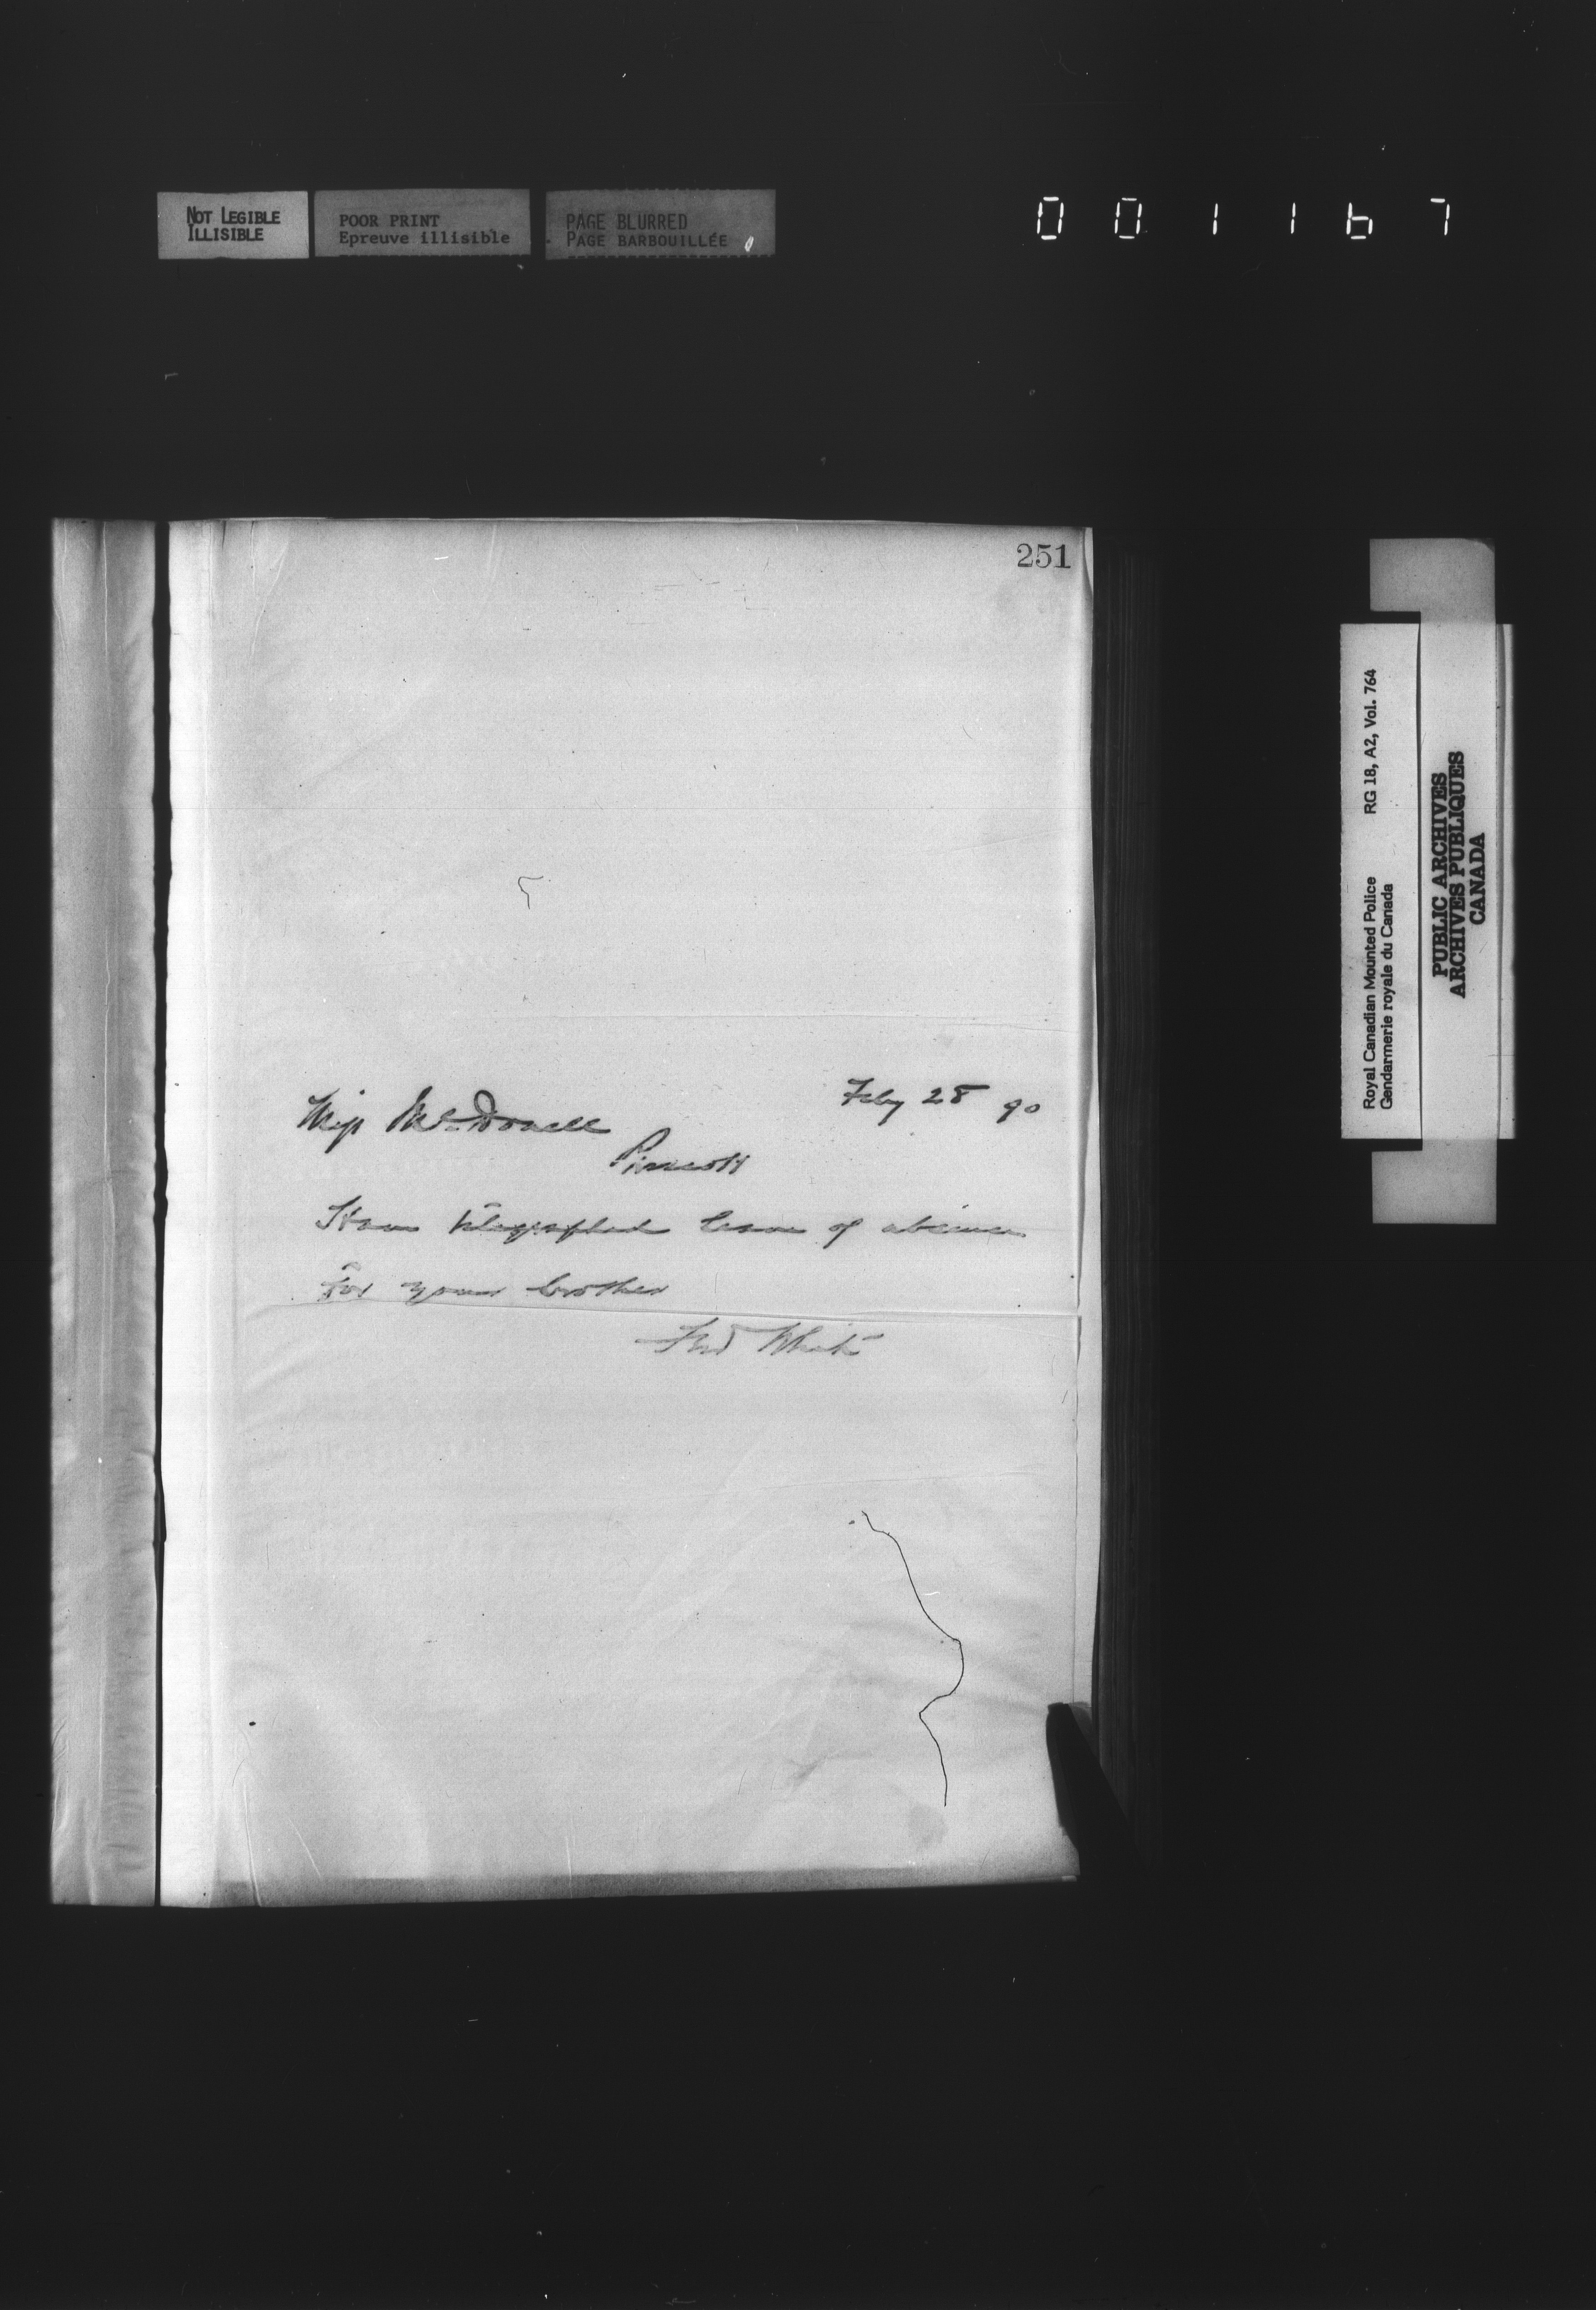 NOT LEGIBLE
ILLISIBLE
POOR PRINT
Epreuve illisible
PAGE BLURRED
PAGE BARBOUILLÉE
001167
251
Feby 28 90
Miss McDonell
Prescott
Have telegraphed leave of absence
for your brother
Fred White
Royal Canadian Mounted Police RG 18, A2, Vol. 764
Gendarmerie royale du Canada
PUBLIC ARCHIVES
ARCHIVES PUBLIQUES
CANADA